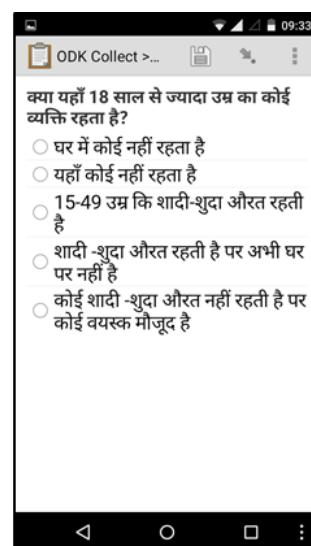 09:33
ODK Collect >...
क्या यहाँ 18 साल से ज्यादा उम्र का कोई
व्यक्ति रहता है?
घर में कोई नहीं रहता है
यहाँ कोई नहीं रहता है
15-49 उम्र कि शादी-शुदा औरत रहती
है
शादी -शुदा औरत रहती है पर अभी घर
पर नहीं है
कोई शादी -शुदा औरत नहीं रहती है पर
कोई वयस्क मौजूद है